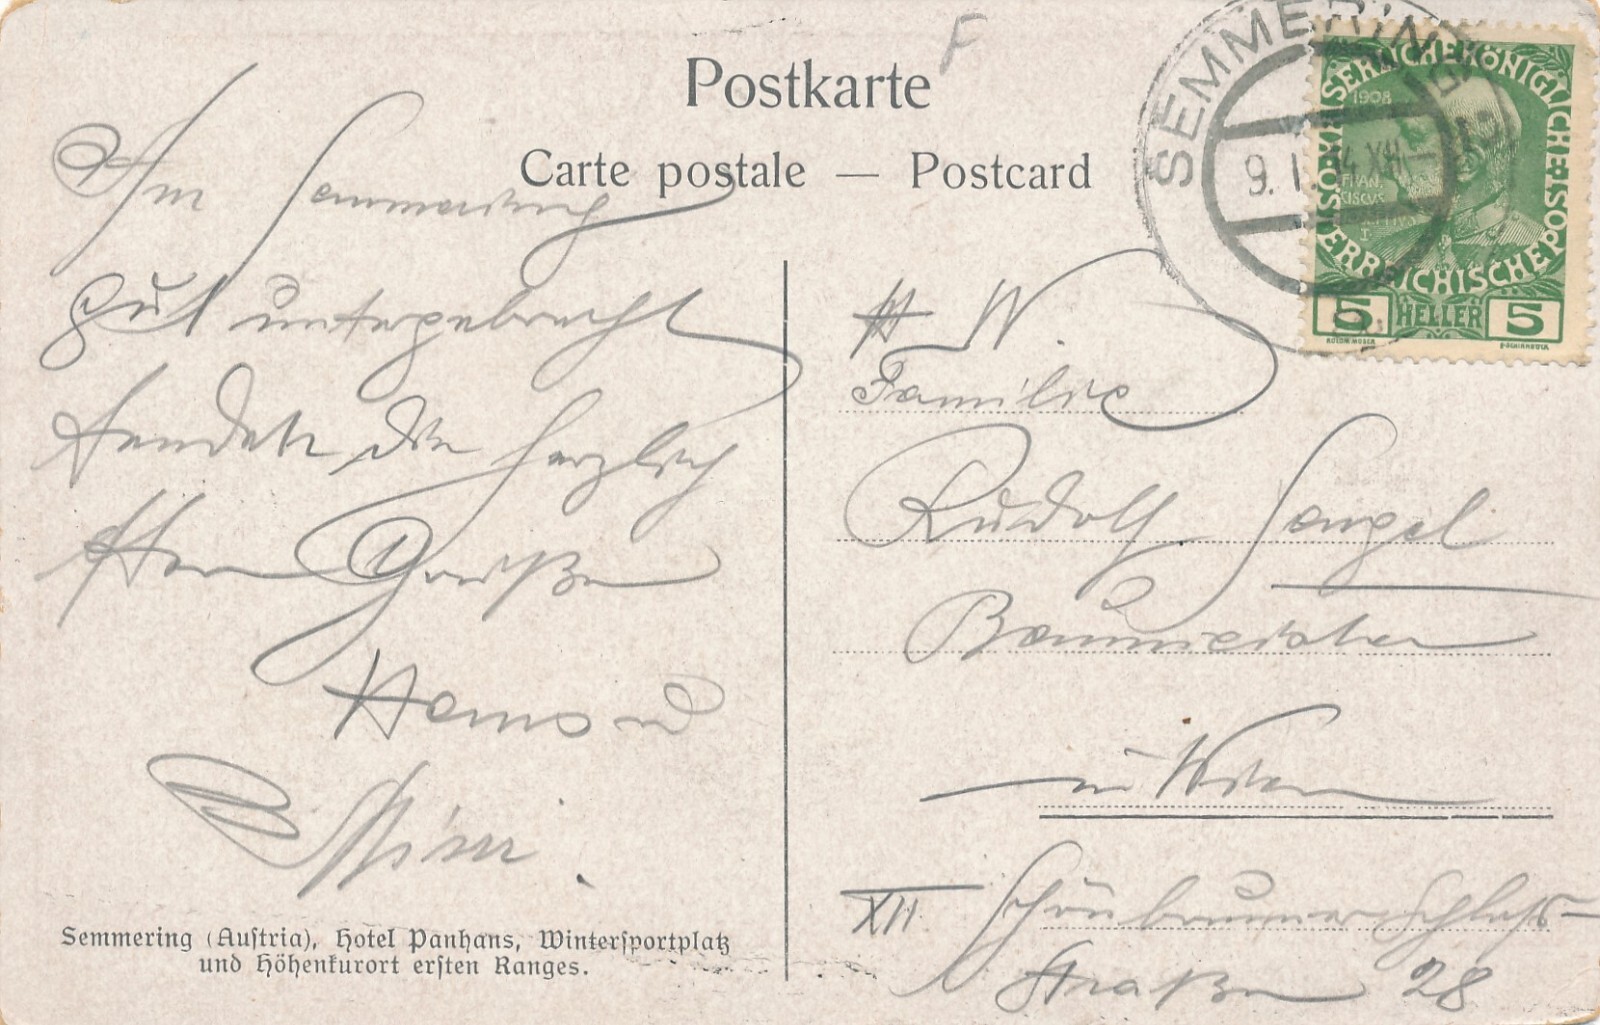 Postkarte
F
Carte postale — Postcard
SEMMERING
9. I. 14 XII
KAISERLICHE KÖNIGLICHE ÖSTERREICHISCHE POST
1908
FRAN-
CISCUS
IOSEPHUS
I
5 HELLER 5
KOLOM. MOSER
F. SCHIRNBÖCK
Am Semmering
gut untergebracht
senden die herzlich
sten Grüße
Hans u
Mimi
W.
Familie
Rudolf Sengel
Baumeister
in Wien
XII Schönbrunner Schloß-
straße 28
Semmering (Austria), Hotel Panhans, Wintersportplatz
und Höhenkurort ersten Ranges.